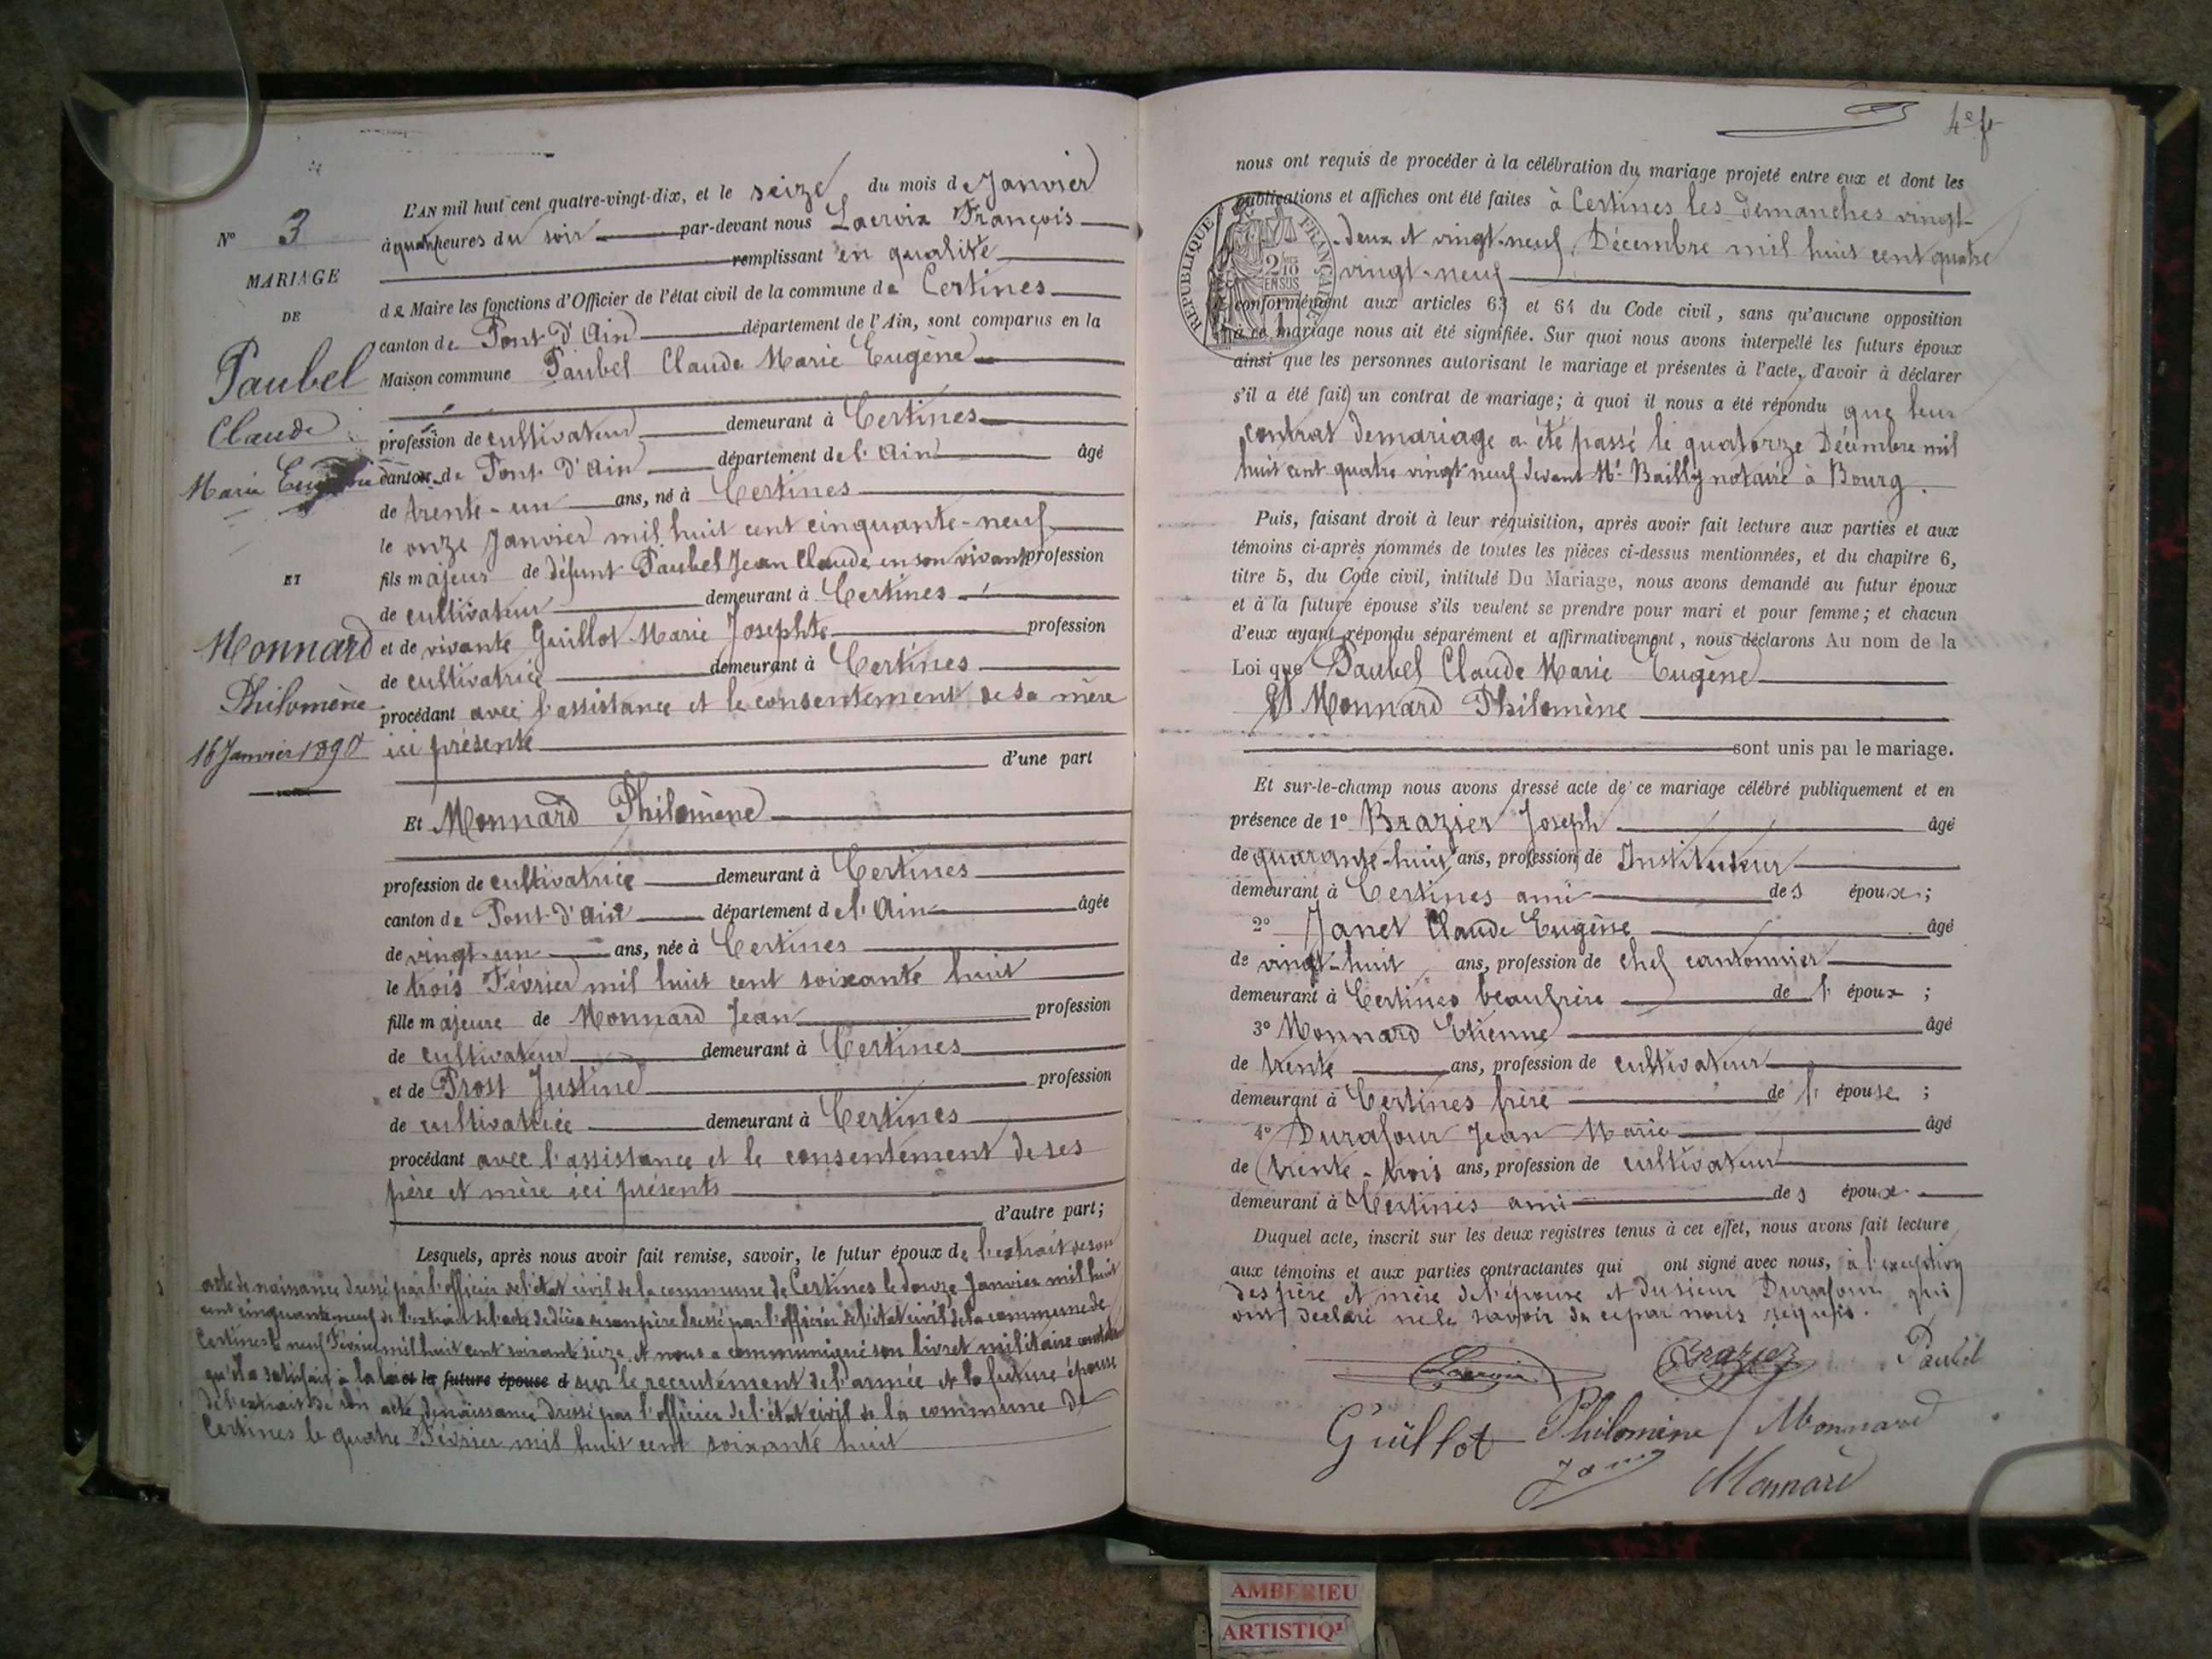 N° 3
MARIAGE
DE
Paubel
Claude
Marie Eugène
ET
Monnard
Philomène
16 Janvier 1890
L'AN mil huit cent quatre-vingt-dix, et le seize du mois de Janvier
à quatre heures du soir par-devant nous Lacroix François
remplissant en qualité
de Maire les fonctions d'Officier de l'état civil de la commune de Certines
canton de Pont d'Ain département de l'Ain, sont comparus en la
Maison commune Paubel Claude Marie Eugène
profession de cultivateur demeurant à Certines
canton de Pont d'Ain département de l'Ain âgé
de trente-un ans, né à Certines
le onze Janvier mil huit cent cinquante-neuf
fils majeur de défunt Paubel Jean Claude en son vivant profession
de cultivateur demeurant à Certines
et de vivante Guillot Marie Josephte profession
de cultivatrice demeurant à Certines
procédant avec l'assistance et le consentement de sa mère
ici présente
d'une part
Et Monnard Philomène
profession de cultivatrice demeurant à Certines
canton de Pont-d'Ain département de l'Ain âgée
de vingt-un ans, née à Certines
le trois Février mil huit cent soixante huit
fille majeure de Monnard Jean profession
de cultivateur demeurant à Certines
et de Prost Justine profession
de cultivatrice demeurant à Certines
procédant avec l'assistance et le consentement de ses
père et mère ici présents
d'autre part;
Lesquels, après nous avoir fait remise, savoir, le futur époux de l'extrait de son
acte de naissance dressé par l'officier de l'état civil de la commune de Certines le douze Janvier mil huit
cent cinquante neuf de l'extrait de l'acte de décès de son père dressé par l'officier de l'état civil de la commune de
Certines le neuf Février mil huit cent soixante seize et nous a communiqué son livret militaire
qu'il a satisfait à la loi et la future épouse d sur le recrutement de l'armée et la future épouse
de l'extrait de son acte de naissance dressé par l'officier de l'état civil de la commune de
Certines le quatre Février mil huit cent soixante huit
4e f
nous ont requis de procéder à la célébration du mariage projeté entre eux et dont les
publications et affiches ont été faites à Certines les dimanches vingt-
deux et vingt-neuf Décembre mil huit cent quatre
vingt-neuf
REPUBLIQUE FRANÇAISE
2/10 EN SUS
conformément aux articles 63 et 64 du Code civil, sans qu'aucune opposition
à ce mariage nous ait été signifiée. Sur quoi nous avons interpellé les futurs époux
ainsi que les personnes autorisant le mariage et présentes à l'acte, d'avoir à déclarer
s'il a été fait un contrat de mariage; à quoi il nous a été répondu que leur
contrat de mariage a été passé le quatorze Décembre mil
huit cent quatre vingt neuf devant Me Bailly notaire à Bourg.
Puis, faisant droit à leur réquisition, après avoir fait lecture aux parties et aux
témoins ci-après nommés de toutes les pièces ci-dessus mentionnées, et du chapitre 6,
titre 5, du Code civil, intitulé Du Mariage, nous avons demandé au futur époux
et à la future épouse s'ils veulent se prendre pour mari et pour femme; et chacun
d'eux ayant répondu séparément et affirmativement, nous déclarons Au nom de la
Loi que Paubel Claude Marie Eugène
Et Monnard Philomène
sont unis par le mariage.
Et sur-le-champ nous avons dressé acte de ce mariage célébré publiquement et en
présence de 1° Brazier Joseph âgé
de quarante-huit ans, profession de Instituteur
demeurant à Certines ami des époux;
2° Janet Claude Eugène âgé
de vingt-huit ans, profession de chef cantonnier
demeurant à Certines beaufrère de l'époux;
3° Monnard Etienne âgé
de trente ans, profession de cultivateur
demeurant à Certines frère de l'épouse;
4° Durafour Jean Marie âgé
de trente-trois ans, profession de cultivateur
demeurant à Certines ami des époux
Duquel acte, inscrit sur les deux registres tenus à cet effet, nous avons fait lecture
aux témoins et aux parties contractantes qui ont signé avec nous, à l'exception
des père et mère de l'épouse et du sieur Durafour qui
ont déclaré ne le savoir de ce par nous requis.
Lacroix Brazier Paubel
Guillot Philomène Monnard
Janet Monnard
AMBERIEU
ARTISTIQ